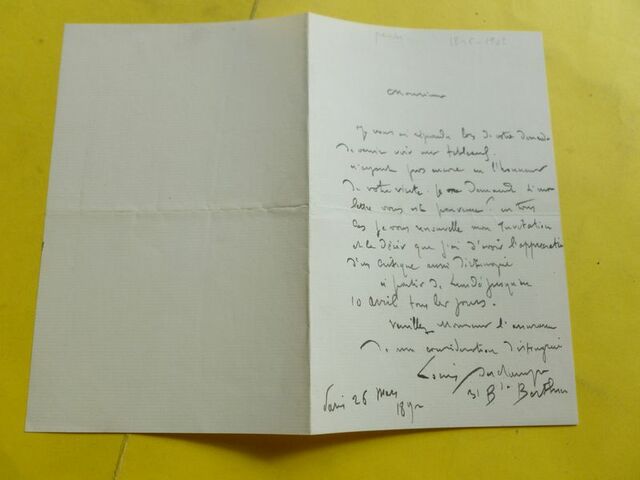 Monsieur
Je vous ai répondu lors de votre demande
de venir voir mes tableaux.
n'ayant pas encore eu l'honneur
de votre visite. Je me demande si ma
lettre vous est parvenue? en tous
cas je vous renouvelle mon invitation
et le désir que j'ai d'avoir l'appréciation
d'un critique aussi distingué
à partir de Lundi jusqu'au
10 avril tous les jours.
Veuillez Monsieur l'assurance
de ma considération distinguée
Louis Deschamps
31 Bd Berthier
Paris 26 Mars